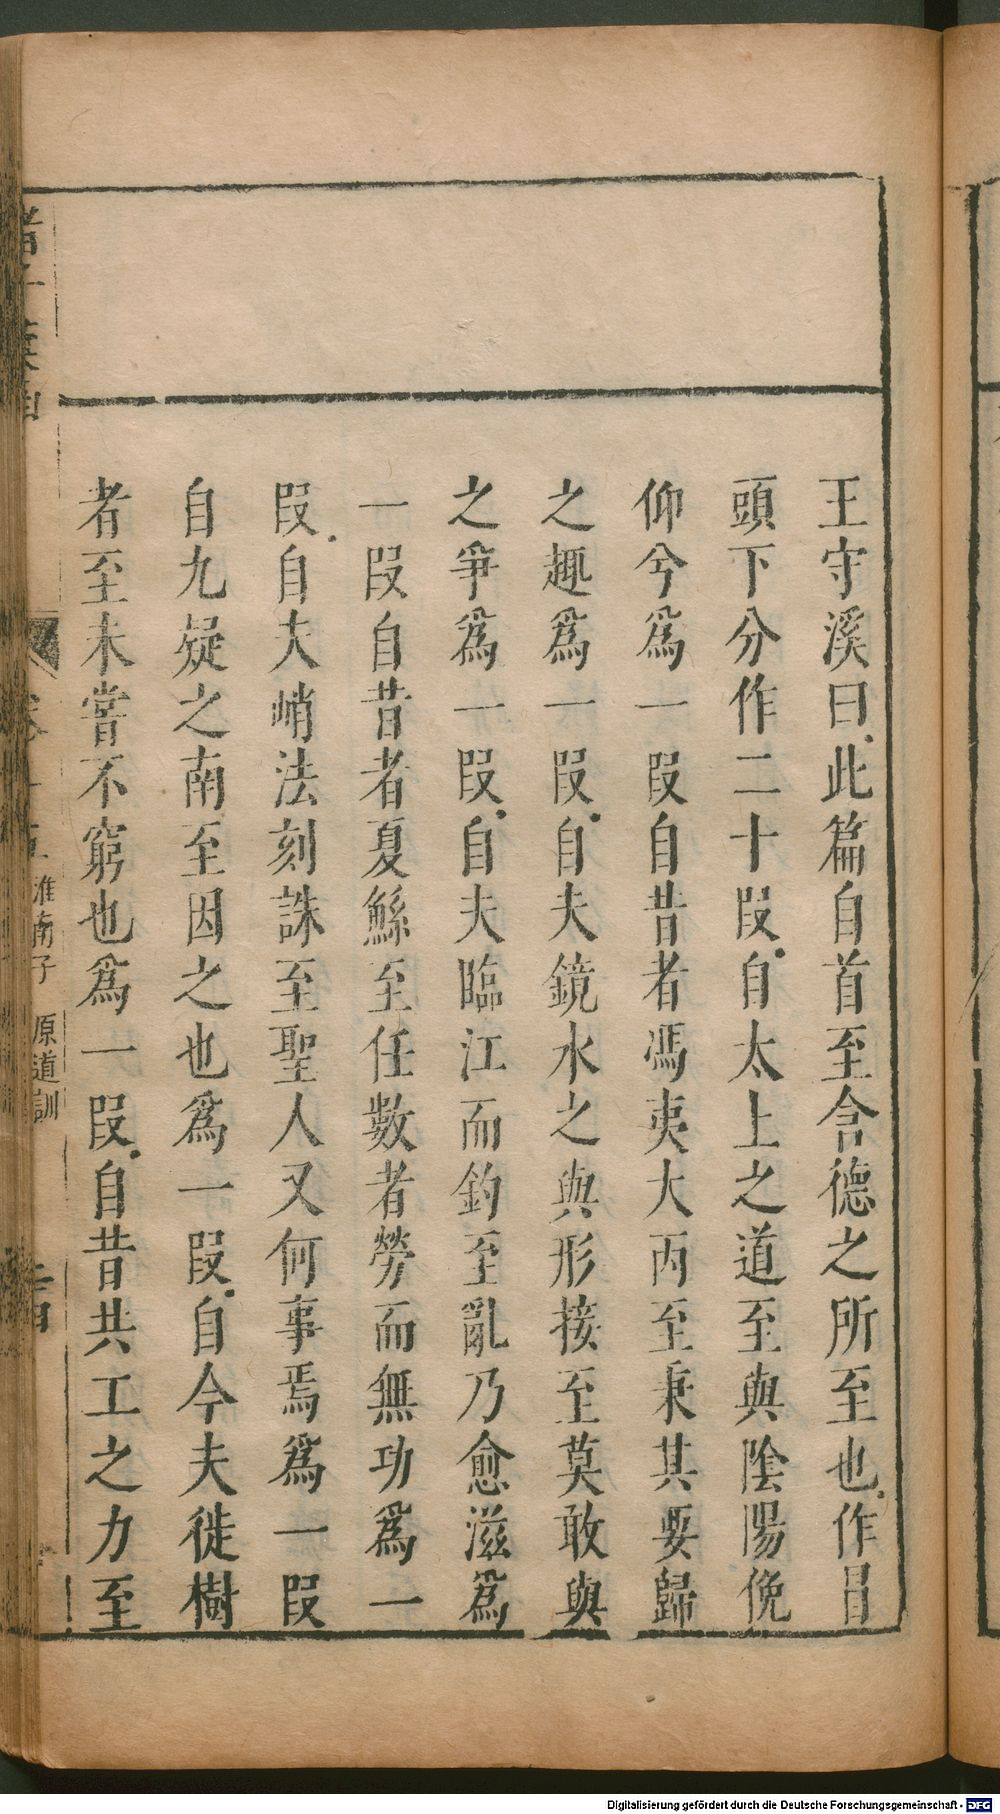 王守溪曰此篇自首至含德之所至也作冒
頭下分作二十段自太上之道至與陰陽俛
仰兮爲一段自昔者馮夷大丙至秉其要歸
之趣爲一段自夫鏡水之與形接至莫敢與
之爭爲一段自夫臨江而釣至亂乃愈滋爲
一段自昔者夏鯀至任數者勞而無功爲一
段自夫峭法刻誅至聖人又何事焉爲一段
自九疑之南至因之也爲一段自今夫徙樹
者至未嘗不窮也爲一段自昔共工之力至
淮南子 原道訓
Digitalisierung gefördert durch die Deutsche Forschungsgemeinschaft - DFG